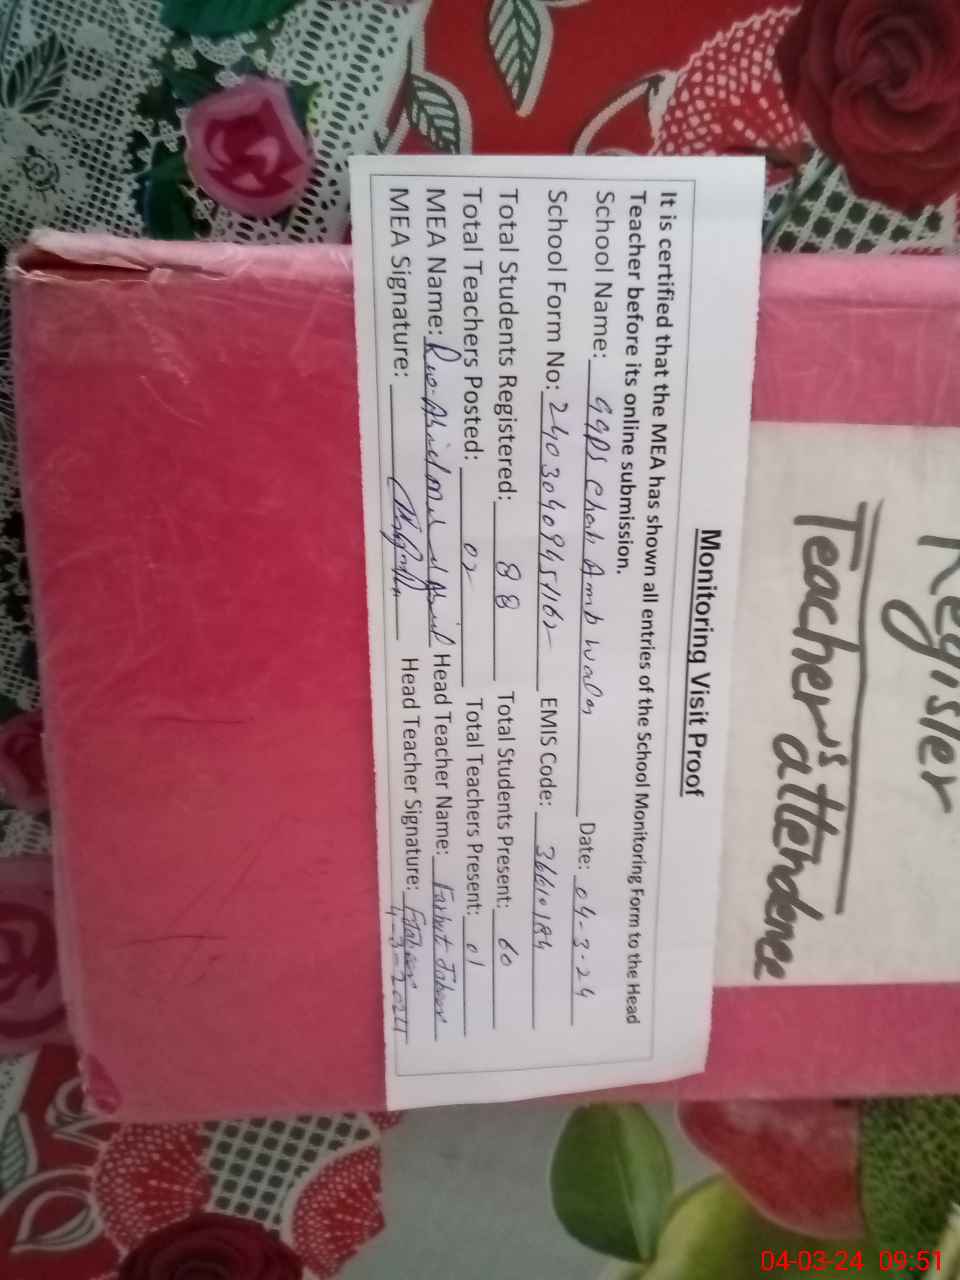 Register
Teacher's attendence
Monitoring Visit Proof
It is certified that the MEA has shown all entries of the School Monitoring Form to the Head
Teacher before its online submission.
School Name: GGPS Chah Amb wala Date: 04-3-24
School Form No: EMIS Code: 36610184
Total Students Registered: 88 Total Students Present: 60
Total Teachers Posted: 02 Total Teachers Present: 01
MEA Name: Head Teacher Name: Farhat Jabeen
MEA Signature: Head Teacher Signature:
4-3-2024
04-03-24 09:51